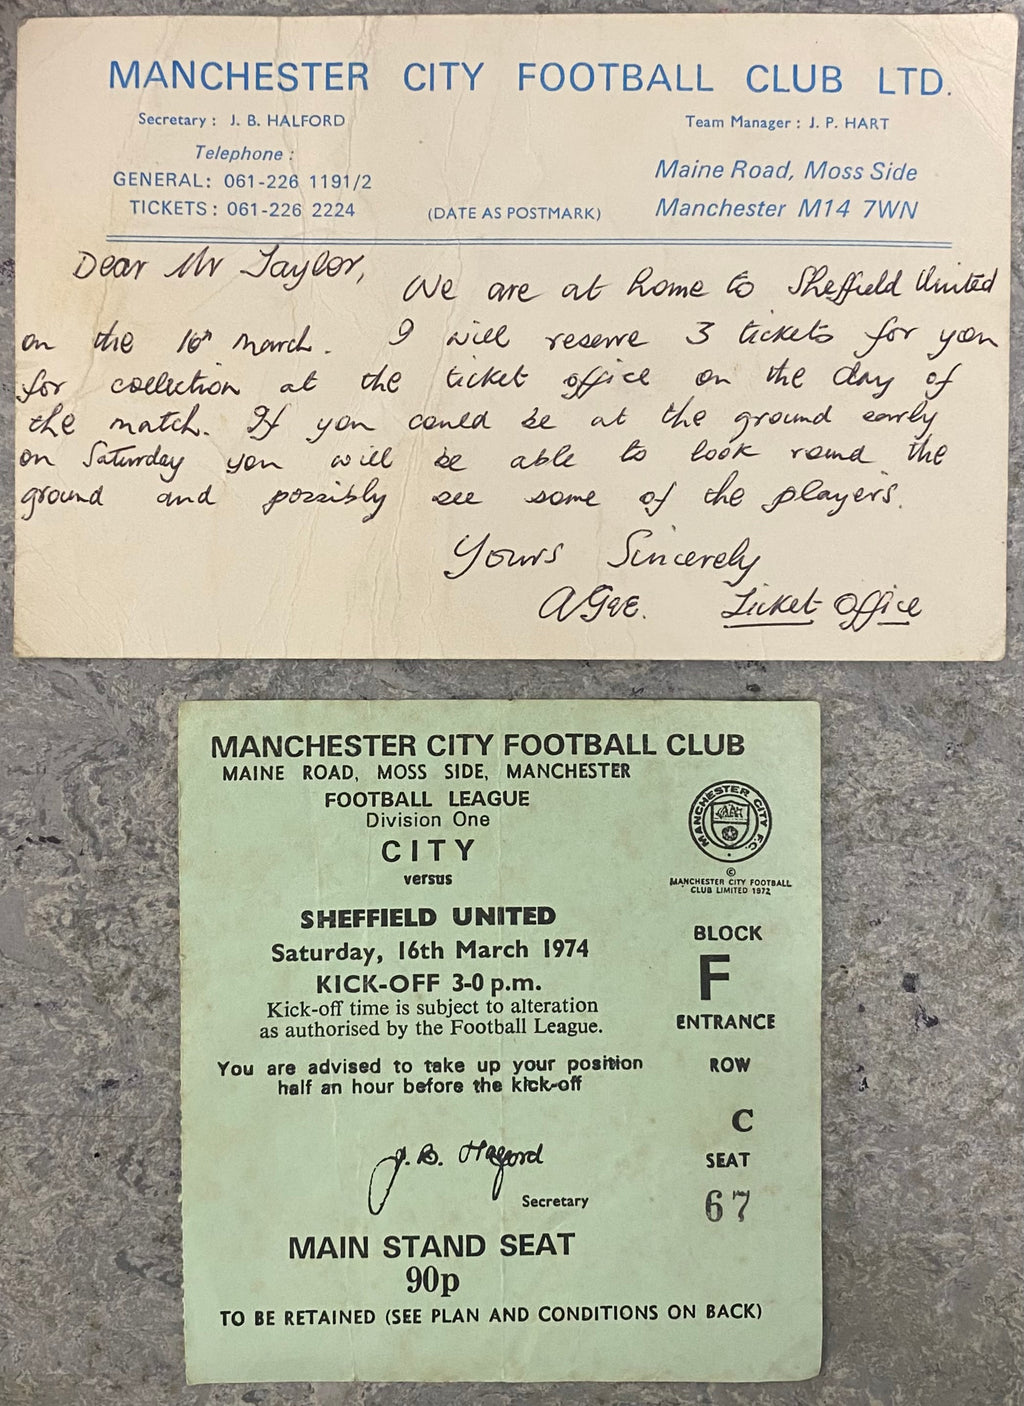 MANCHESTER CITY FOOTBALL CLUB LTD.
Secretary : J. B. HALFORD
Team Manager : J. P. HART
Telephone :
GENERAL: 061-226 1191/2
TICKETS : 061-226 2224
(DATE AS POSTMARK)
Maine Road, Moss Side
Manchester M14 7WN
Dear Mr Taylor,
We are at home to Sheffield United
on the 16th March. I will reserve 3 tickets for you
for collection at the ticket office on the day of
the match. If you could be at the ground early
on Saturday you will be able to look round the
ground and possibly see some of the players.
Yours Sincerely
Ticket Office
MANCHESTER CITY FOOTBALL CLUB
MAINE ROAD, MOSS SIDE, MANCHESTER
FOOTBALL LEAGUE
Division One
CITY
versus
SHEFFIELD UNITED
Saturday, 16th March 1974
KICK-OFF 3-0 p.m.
Kick-off time is subject to alteration
as authorised by the Football League.
You are advised to take up your position
half an hour before the kick-off
J. B. Halford
Secretary
MAIN STAND SEAT
90p
TO BE RETAINED (SEE PLAN AND CONDITIONS ON BACK)
MANCHESTER CITY F.C.
©
MANCHESTER CITY FOOTBALL
CLUB LIMITED 1972
BLOCK
F
ENTRANCE
ROW
C
SEAT
67